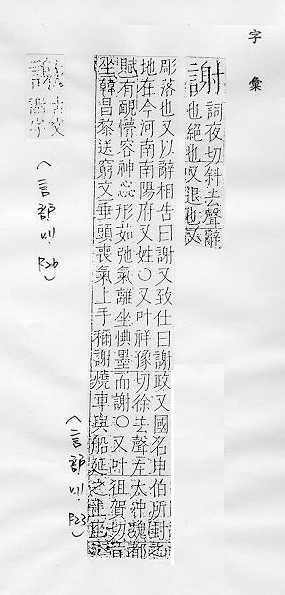 字彙
謝
詞夜切斜去聲辭
也絕也又退也又
彫落也又以辭相告曰謝又致仕曰謝政又國名申伯所封
地在今河南南陽府又姓○又叶祥豫切徐去聲左太沖魏都
賦有靦瞢容神惢形茹弛氣離坐惵墨而謝○又叶祖賀切音
坐韓昌黎送窮文垂頭喪氣上手稱謝燒車與船延之上座
(言部
P23)
古文
謝字
(言部
P26)